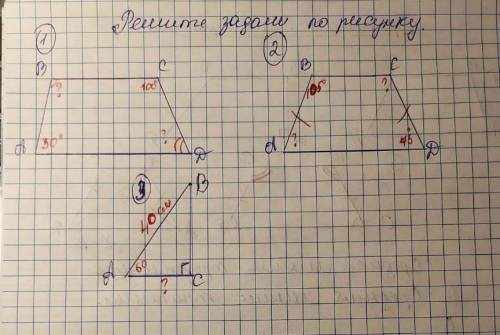 Решите задачи по рисунку.
1
B C
? 100°
A 30° ? D
2
B C
105 ?
A ? 45 D
3
B
40 см
A C
?